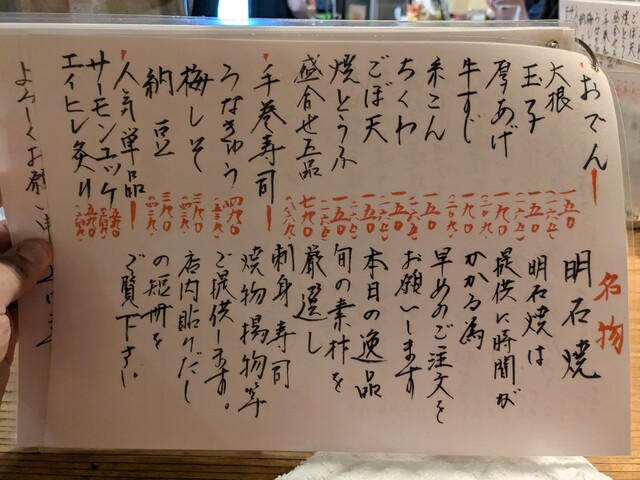 おでん
大根 一五〇 (一六五)
玉子 一五〇 (一六五)
厚あげ
牛すじ
糸こん 一五〇
ちくわ 一五〇
ごぼ天 一五〇
焼とうふ 一五〇
盛合せ五品 七九〇 (八六九)
手巻寿司
うなきゅう 四九〇
梅しそ 三九〇 (四二九)
納豆 三九〇 (四二九)
人気単品
サーモンユッケ
エイヒレ炙り
よろしくお願い申
名物
明石焼
明石焼は
提供に時間が
かかる為
早めのご注文を
お願いします
本日の逸品
旬の素材を
厳選し
刺身 寿司
焼物揚物等
ご提供します。
店内貼りだし
の短冊を
ご覧下さい。